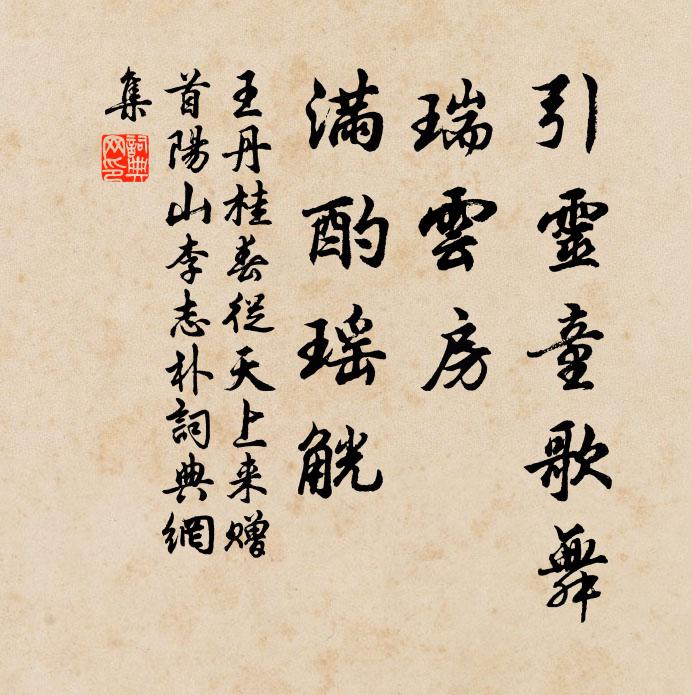 引靈童歌舞
瑞雲房
滿酌瑶觥
王丹桂春從天上来贈
首陽山李志朴詞典網
集
詞典
网印